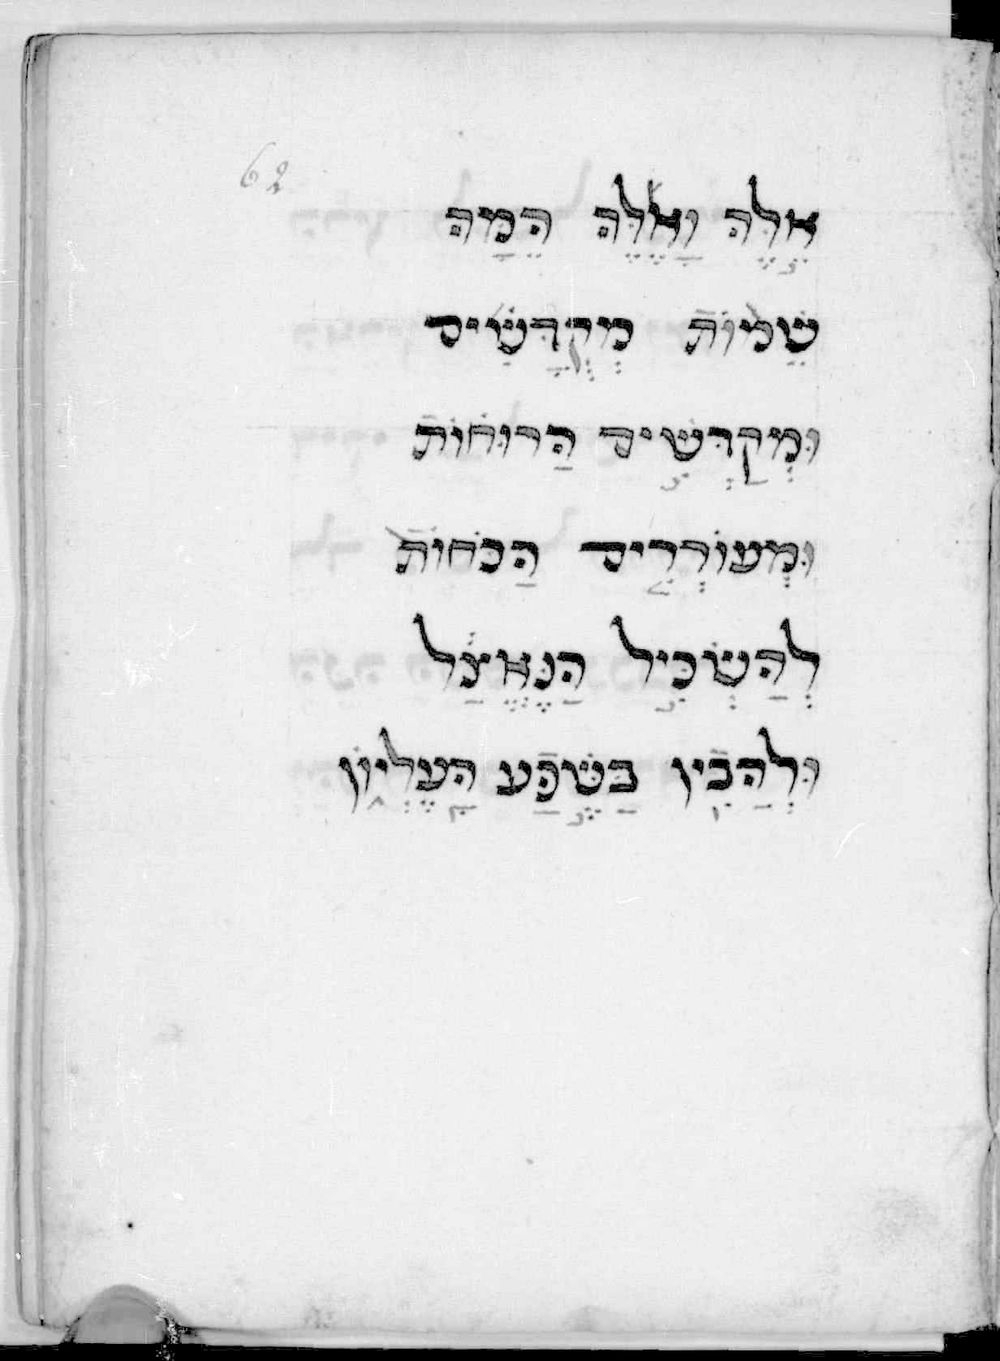 62
אֵלֶּה וָאֵלֶּה הֵמָּה
שֵׁמוֹת מְקֻדָּשִׁים
וּמְקַדְּשִׁים הַרוּחוֹת
וּמְעוֹרְרִים הַכֹּחוֹת
לְהַשְׂכִּיל הַנֶּאֱצָל
וּלְהַבִין בַּשֶּׁפַע הָעֶלְיוֹן